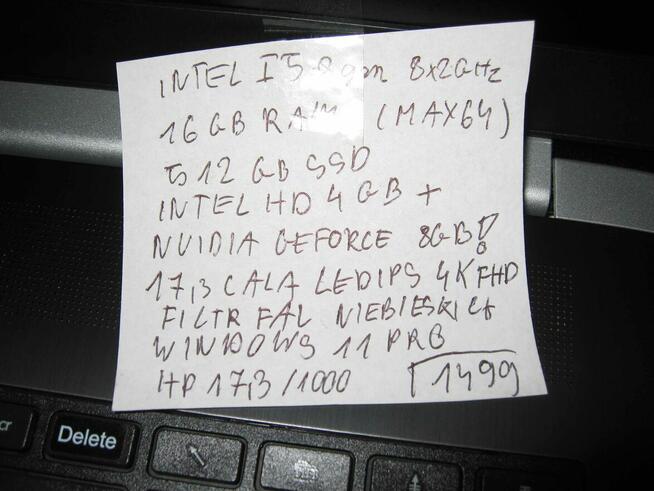 INTEL I5 8gen 8x2GHz
16 GB RAM (MAX64)
512 GB SSD
INTEL HD 4 GB +
NVIDIA GEFORCE 8GB!
17,3 CALA LEDIPS 4K FHD
FILTR FAL NIEBIESKICH
WINDOWS 11 PRO
HP 17,3 /1000 1499
cr Delete